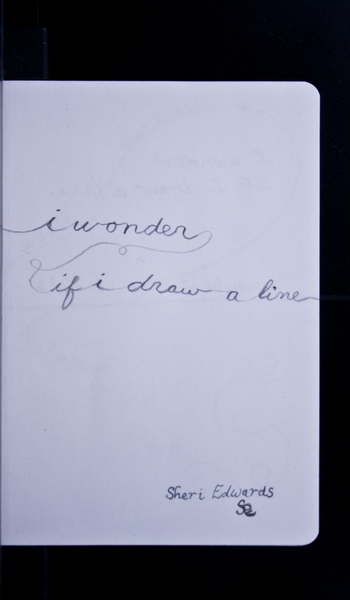 i wonder
if i draw a line
Sheri Edwards
SE